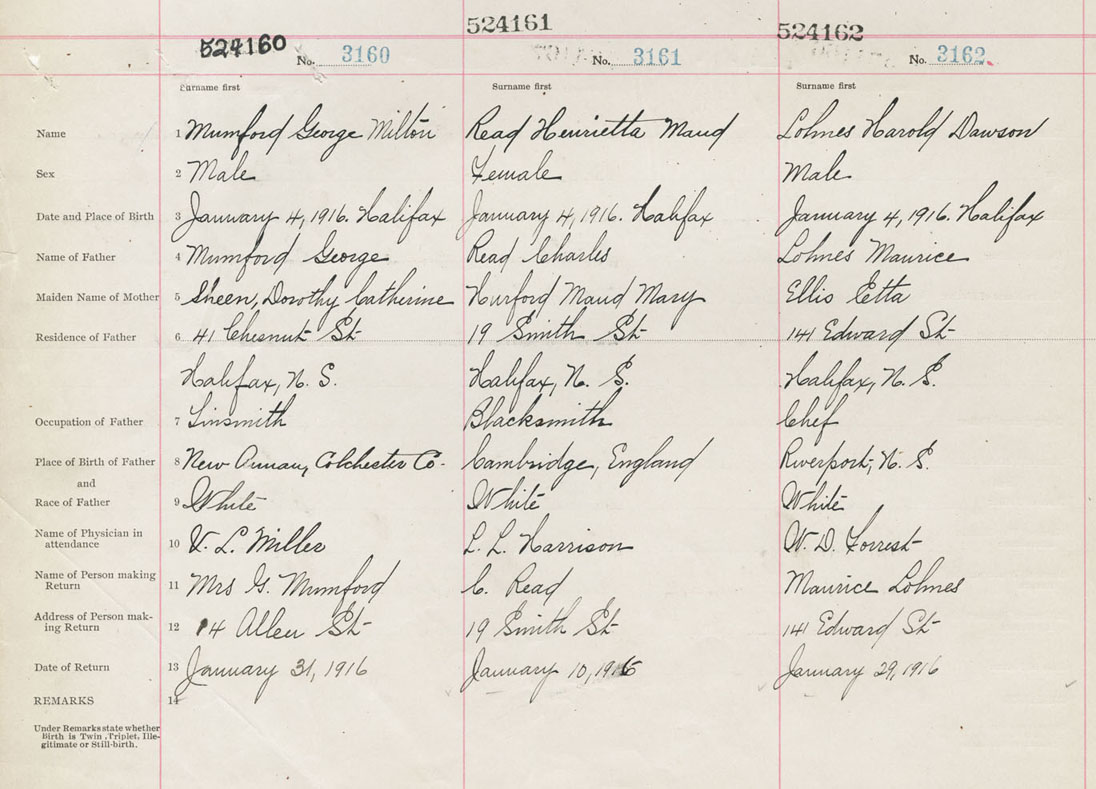 524160 524161 524162
No. 3160 No. 3161 No. 3162
Surname first Surname first Surname first
Name 1 Mumford George Milton Read Henrietta Maud Lohnes Harold Dawson
Sex 2 Male Female Male
Date and Place of Birth 3 January 4, 1916. Halifax January 4, 1916. Halifax January 4, 1916. Halifax
Name of Father 4 Mumford George Read Charles Lohnes Maurice
Maiden Name of Mother 5 Sheen, Dorothy Catherine Hurford Maud Mary Ellis Etta
Residence of Father 6 41 Chesnut St 19 Smith St 141 Edward St
Halifax, N. S. Halifax, N. S. Halifax, N. S.
Occupation of Father 7 Tinsmith Blacksmith Chef
Place of Birth of Father 8 New Annan, Colchester Co. Cambridge, England Riverport, N. S.
and
Race of Father 9 White White White
Name of Physician in
attendance 10 V. L. Miller L. L. Harrison W. D. Forrest
Name of Person making
Return 11 Mrs G. Mumford C. Read Maurice Lohnes
Address of Person mak-
ing Return 12 14 Allen St 19 Smith St 141 Edward St
Date of Return 13 January 31, 1916 January 10, 1916 January 29, 1916
REMARKS 14
Under Remarks state whether
Birth is Twin, Triplet, Ille-
gitimate or Still-birth.